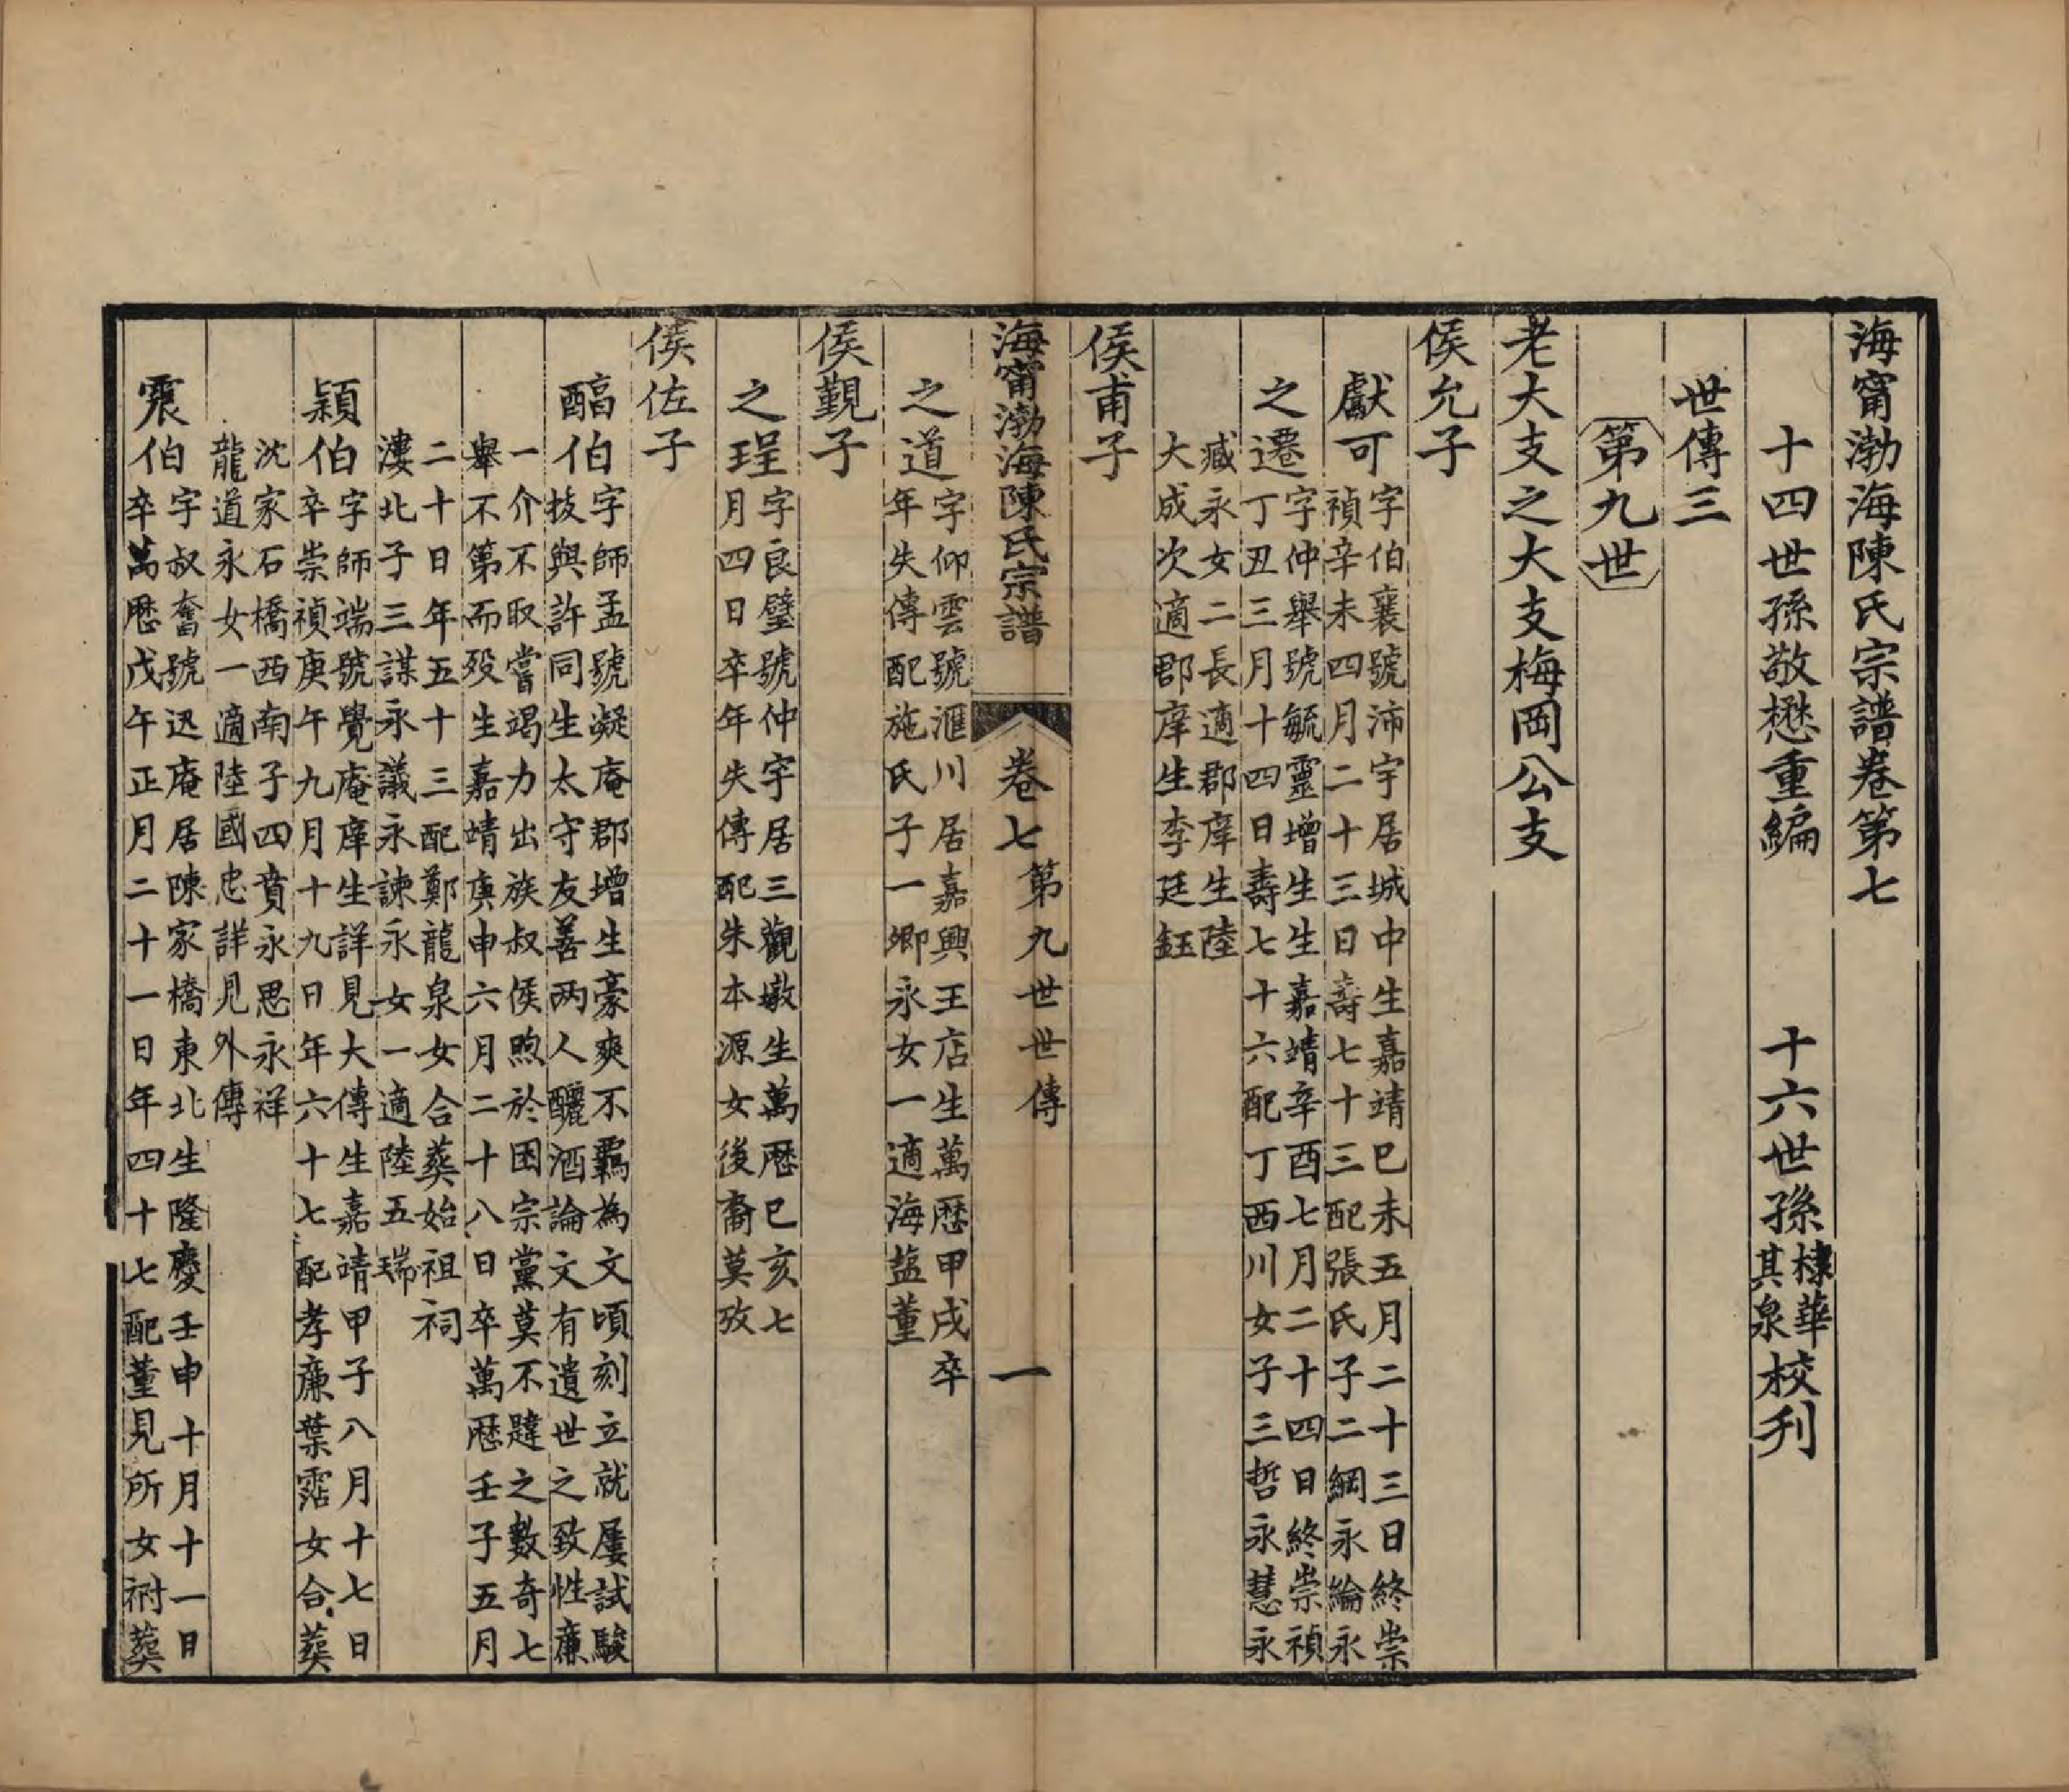 海甯渤海陳氏宗譜卷第七
十四世孫敬懋重編　十六世孫棣華其泉校刋
世傳三
第九世
老大支之大支梅岡公支
侯允子
獻可字伯襄號沛宇居城中生嘉靖己未五月二十三日終崇
禎辛未四月二十三日壽七十三配張氏子二綱永綸永
之遷字仲舉號毓靈增生生嘉靖辛酉七月二十四日終崇禎
丁丑三月十四日壽七十六配丁西川女子三哲永慧永
臧永女二長適郡庠生陸
大成次適郡庠生李廷鈺
侯甫子
海甯渤海陳氏宗譜　卷七　第九世世傳　一
之道字仰雲號滙川居嘉興王店生萬厯甲戌卒
年失傳配施氏子一卿永女一適海盐董
侯觐子
之珵字良璧號仲宇居三觀墩生萬厯己亥七
月四日卒年失傳配朱本源女後裔莫攷
侯佐子
醕伯字師孟號凝庵郡增生豪爽不羈為文頃刻立就屢試駿
拔與許同生太守友善两人釃酒論文有遺世之致性廉
一介不取嘗竭力出族叔侯煦於困宗黨莫不韙之數奇七
舉不第而殁生嘉靖庚申六月二十八日卒萬厯壬子五月
二十日年五十三配鄭龍泉女合葬始祖祠
漊北子三謀永議永諫永女一適陸五瑞
穎伯字師端號覺庵庠生詳見大傳生嘉靖甲子八月十七日
卒崇禎庚午九月十九日年六十七配孝廉葉霑女合葬
沈家石橋西南子四賁永思永祥
龍道永女一適陸國忠詳見外傳
震伯字叔奮號迅庵居陳家橋東北生隆慶壬申十月十一日
卒萬厯戊午正月二十一日年四十七配董見所女祔葬